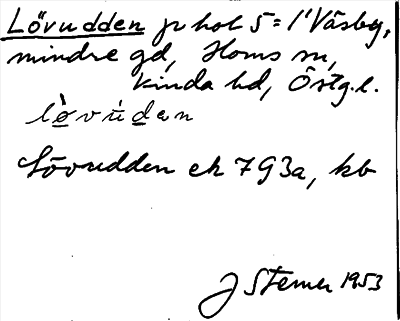 Lövudden p hol 5 = 1' Väsby,
mindre gd, Horns sn,
Kinda hd, Östg.l.
lø̀vúden
Lövudden ek 7 G 3a, kb
J Sterner 1953